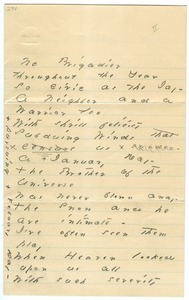 No Brigadier
throughout the Year
So civic as the Jay -
A Neighbor and a
Warrior too
With shrill felicity
Pursuing Winds that
Censure us
A Day -
the Brother of the
Universe
Was never blown away -
the Snow and he
are intimate -
I've often seen them
play
When Heaven looked
upon us all
With such severity